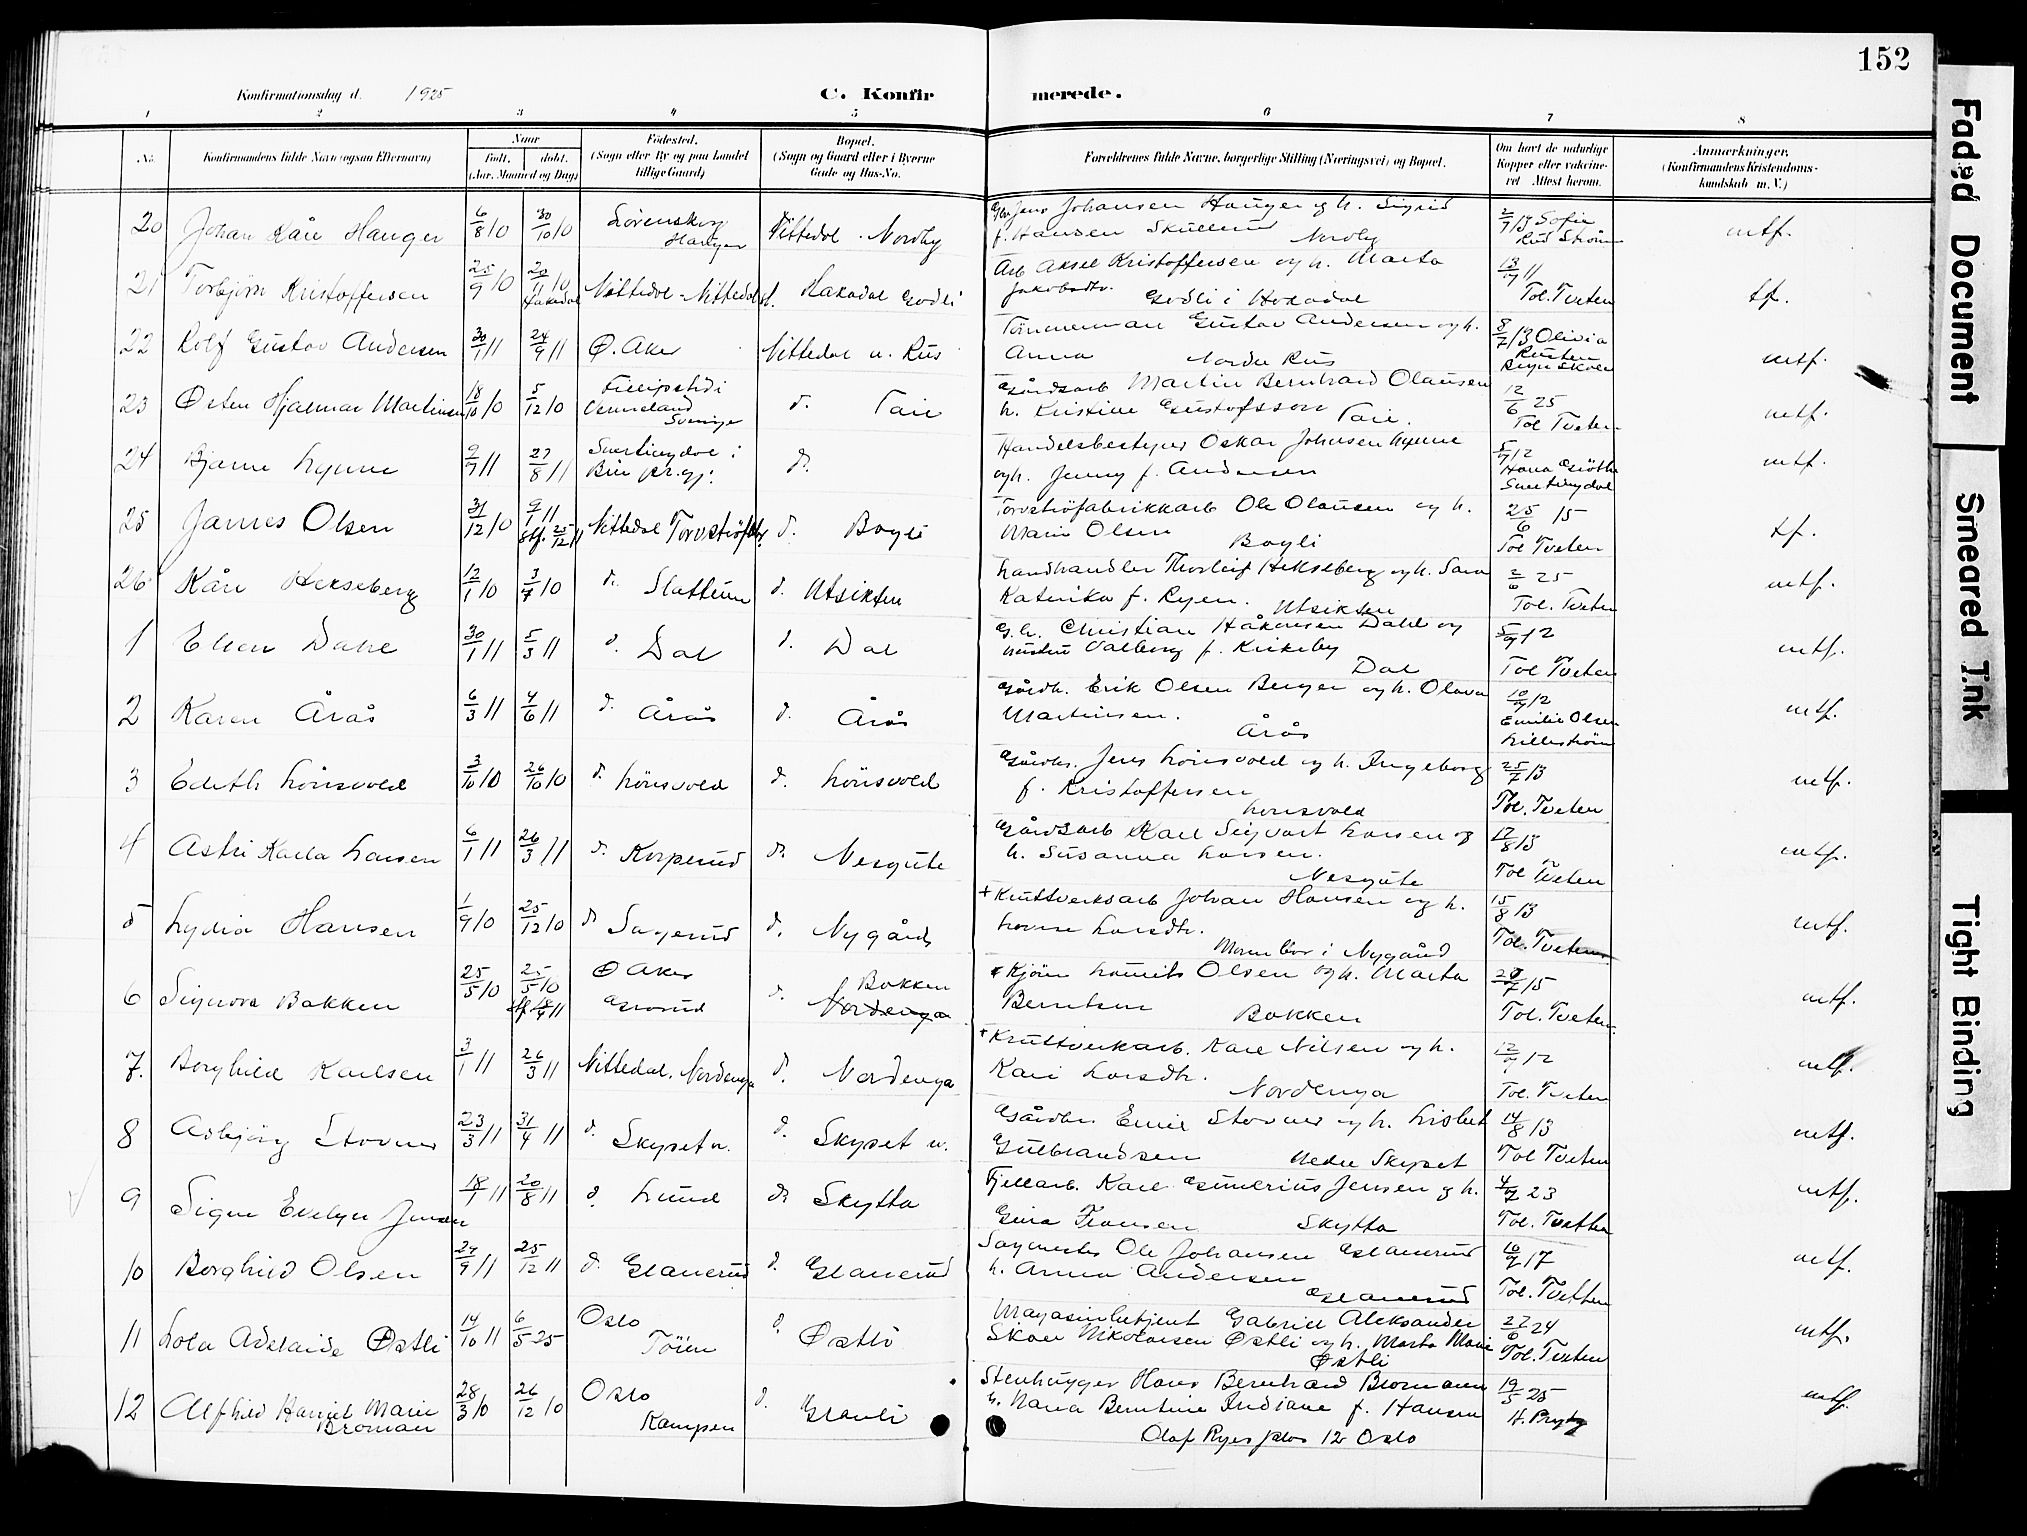 152
Konfirmationsdag d. 1925
C. Konfirmerede.
1 2 3 4 5 6 7 8
No. Konfirmandens fulde Navn (ogsaa Efternavn) Naar født, døbt. (Aar, Maaned og Dag) Fødested. (Sogn eller By og paa Landet tillige Gaard) Bopæl. (Sogn og Gaard eller i Byerne Gade og Hus-No. Forældrenes fulde Navne, borgerlige Stilling (Næringsvei) og Bopæl. Om havt de naturlige Kopper eller vaccineret. Attest herom. Anmærkninger. (Konfirmandens Kristendomskundskab m. V.)
20 Johan Kåre Hauger 6/8 10 30/10 10 Lörenskog Hauger Nittedal Nordby
Jens Johansen Hauger og h. Sigrid
f. Hansen Skullerud Nordby
2/7 13 Sofie Rud Ström mtf.
21 Torbjörn Kristoffersen 25/9 10 20/11 10 Hakadal Nittedal - Nittedal st. Hakadal Godli
Arb Aksel Kristoffersen og h. Marta
Jakobsdtr. Godli i Hakadal
13/9 11 Tol. Tveten tf.
22 Rolf Gustav Andersen 30/7 11 24/9 11 Ø. Aker Nittedal n. Rus
Tömmerman Gustav Andersen og h.
Anna Nordre Rus
8/7 13 Olivia mtf.
23 Östen Hjalmar Martinsen 18/10 10 5/12 10 Fillipstad i Vermeland Sverige d. Taie
Gårdsarb Martin Bernhard Olausen
h. Kristine Gustofsson Taie.
12/6 25 Tol Tveten mtf.
24 Bjarne Lynne 9/7 11 27/8 11 Snertingdal i Biri pr.gj. d.
Handelsbestyrer Oskar Johnsen Lynne
og h. Jenny f. Andersen
5/9 12 Snertingdal mtf.
25 James Olsen 31/12 10 9/1 11 Stf. 25/12 11 Nittedal Torvströfabr. d. Bogli
Torvströfabrikkarb Ole Olausen og h.
Marie Olsen Bogli
25/6 15 Tol Tveten tf.
26 Kåre Hekseberg 12/1 10 3/7 10 d. Slattum d. Utsikten
Landhandler Thorleif Hekseberg og h. Sara
Katinka f. Ryen. Utsikten
2/6 25 Tol. Tveten mtf.
1 Ellen Dahl 30/1 11 5/3 11 d. Dal d. Dal
G.b. Christian Håkonsen Dahl og
hustru Valborg f. Kirkeby Dal
5/9 12 Tol Tveten mtf.
2 Karen Årås 6/3 11 4/6 11 d. Årås d. Årås
Gårdb. Erik Olsen Berger og h. Olava
Martinsen. Årås
10/9 12 Emilie Olsen Lilleström mtf.
3 Edith Lönsvold 3/10 10 26/10 10 d. Lönsvold d. Lönsvold
Gårdbr. Jens Lönsvold og h. Ingeborg
f. Kristoffersen Lonsvold
25/7 13 Tol. Tveten mtf.
4 Astri Karla Larsen 6/1 11 26/3 11 d. Korperud d. Nesgute
Gårdsarb Karl Sigvart Larsen og
h. Susanna Larsen. Nesgute
12/8 13 Tol Tveten mtf.
5 Lydia Hansen 1/9 10 25/12 10 d. Sagerud d. Nygård
+ Kruttverksarb Johan Hansen og h.
Lovise Larsdtr. Moren bor i Nygård
15/8 13 Tol. Tveten mtf.
6 Signora Bakken 25/5 10 25/5 10 Stf. 18/4 11 Ø Aker Grorud d. Bakken Nordenga
Kjörer Laurits Olsen og h. Marta
Berntsen Bakken
20/7 15 Tol. Tveten. mtf.
7. Borghild Karlsen 3/1 11 26/3 11 Nittedal. Nordenga d. Nordenga
+ Kruttverkarb. Karl Nilsen og h.
Kari Larsdtr. Nordenga
12/9 12 Tol. Tveten mtf.
8 Asbjörg Stovner 23/3 11 31/4 11 d. Skyset n. d. Skyset n.
Gårdbr. Emil Stovner og h. Lisbet
Gulbrandsen Nedre Skyset
14/8 13 Tol Tveten mtf.
9 Signe Evelyn Jensen 18/1 11 20/8 11 d. Lund d. Skytta
Fjellarb. Karl Gunerius Jensen og h.
Gina Fransen Skytta
4/7 23 Tol. Tvetten mtf.
10 Borghild Olsen 27/9 11 25/12 11 d. Glanerud d. Glanerud
Sagmester Ole Johansen Glanerud
h. Anna Andersen Glanerud
10/9 17 Tol. Tvetten mtf.
11 Lola Adelaide Østli 14/10 11 6/5 25 Oslo Töien d. Østli
Magasinbetjent Gabriel Aleksander
Skau Nikolaisen Østli og h. Marta Marie
Østli
27/6 24 Tol. Tveten mtf.
12 Alfhild Harriet Marie Broman 28/3 10 26/12 10 Oslo Kampen d. Granli
Stenhugger Hans Bernhard Bromann
h. Nana Berntine Indiane f. Hansen
Olaf Ryes plas 12 Oslo
19/5 25 mtf.
Faded Document
Smeared Ink
Tight Binding